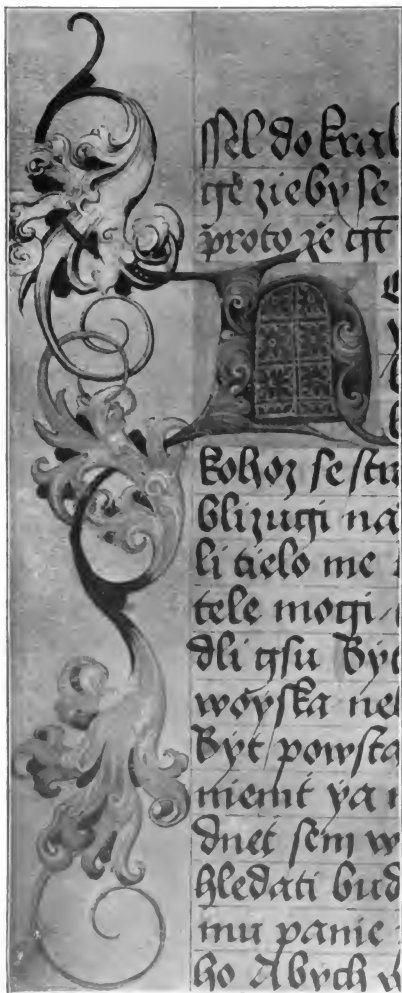 ſſel do kral
gē zieby ſe
proto zē
kohoz ſe ſtra
blizugi na
li tielo me
tele mogi /
dli gſu Byt
woyſka ne
Byt powſta
niemt ya
dnet ſem w
hledati bud
mu panie
ho Abych